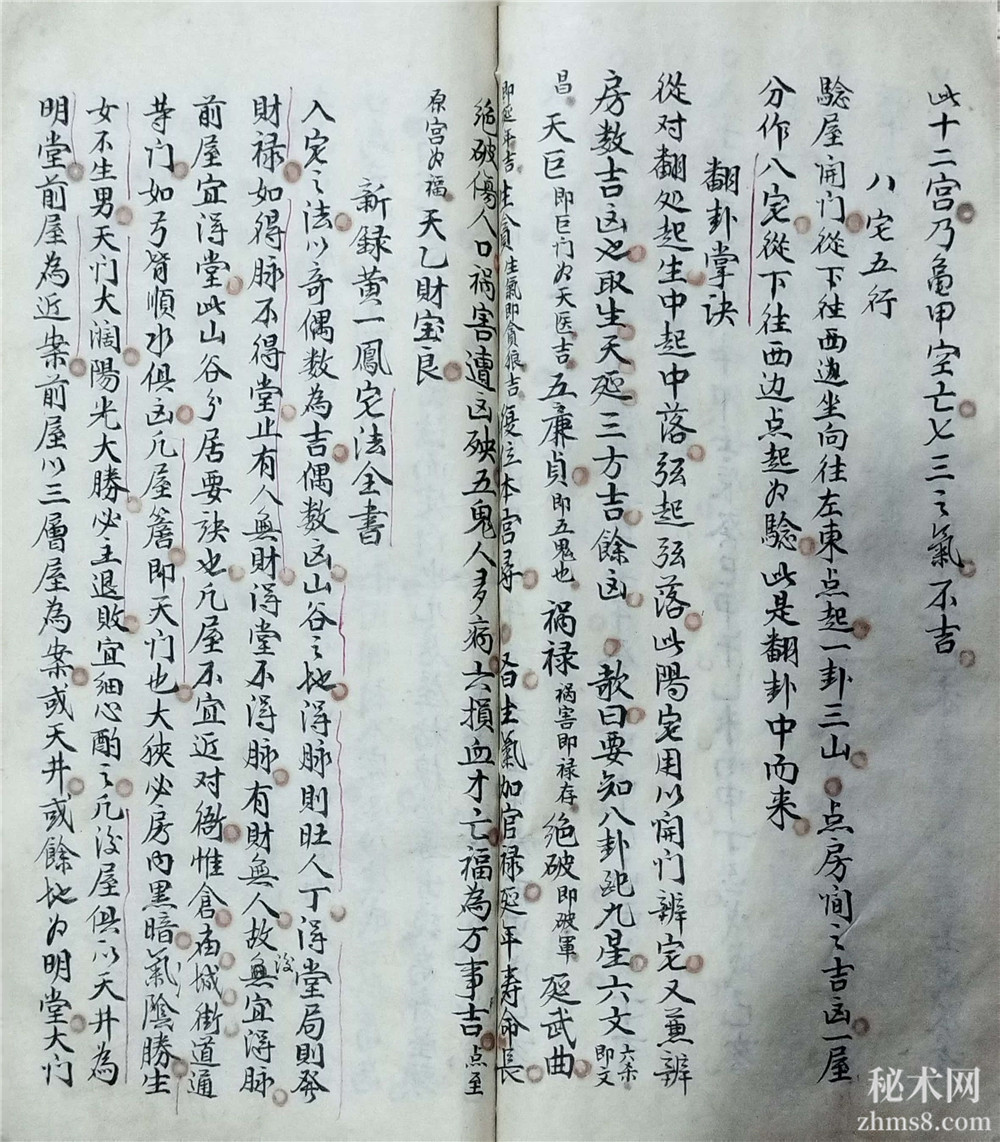 此十二宫乃亀甲空亡七三之氣不吉
八宅五行
驗屋開门從下往西邊坐向往左東点起一卦三山点房间之吉凶一屋
分作八宅從下往西边点起为驗此是翻卦中而来
翻卦掌诀
從对翻处起生中起中落弦起弦落此陽宅用以開门辨宅又兼辨
房数吉凶也取生天延三方吉餘凶 歌曰要知八卦配九星六文六杀即文
昌天巨即巨门为天医吉五廉贞即五鬼也 祸禄祸害即禄存绝破即破軍延武曲
即延年吉生貪生氣即貪狼吉復位本宫尋 生氣加官禄延年寿命長
绝破傷人口祸害遭凶殃五鬼人多病六損血才亡福為万事吉点至
原宫为福天乙財宝良
新録黄一鳳宅法全書
入宅之法以奇偶数為吉偶数凶山谷之地得脉則旺人丁得堂局則發
財禄如得脉不得堂止有人無財得堂不得脉有財無人故無宜得脉後
前屋宜得堂此山谷分居要诀也凡屋不宜近对衙惟倉庙城街道通
䓁门如弓背順水俱凶凡屋簷即天门也大狭必房内黑暗氣陰勝生
女不生男天门大濶陽光大勝必主退敗宜细心酌之凡後屋俱以天井為
明堂前屋為近案前屋以三層屋為案或天井或餘地为明堂大门
秘术网
zhms8.com